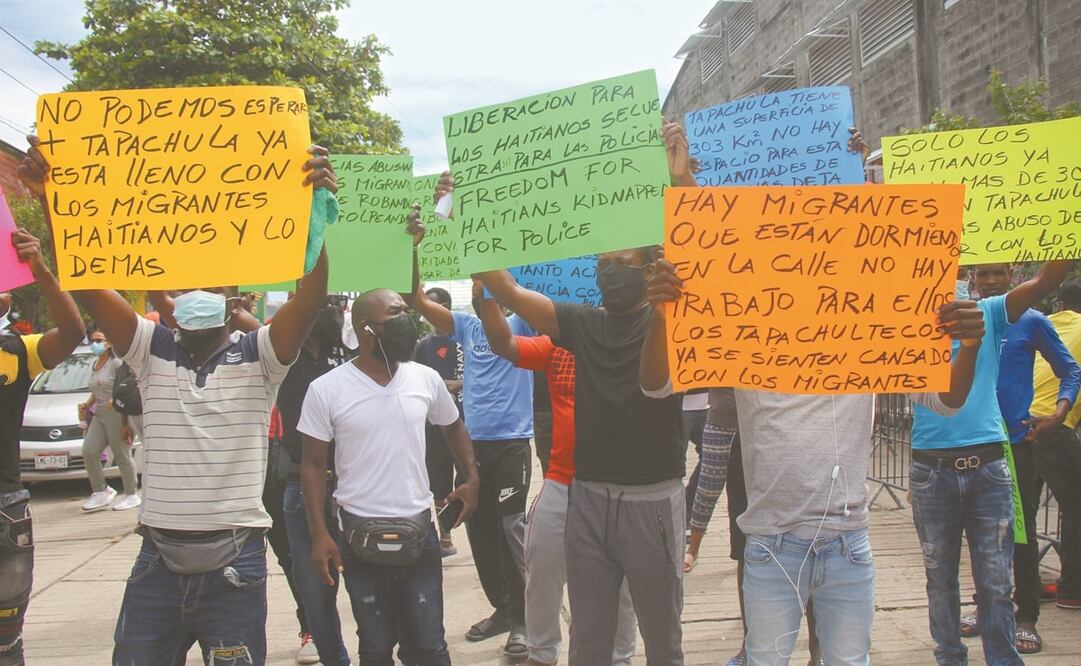 NO PODEMOS ESPERAR
+ TAPACHULA YA
ESTA LLENO CON
LOS MIGRANTES
HAITIANOS Y LO
DEMAS
ABUSAN
MIGRAN
ROBAN
GOLPEAN
LIBERACION PARA
LOS HAITIANOS SECUE
STRADO PARA LAS POLICIA
FREEDOM FOR
HAITIANS KIDNAPPED
FOR POLICE
TAPACHULA TIENE
UNA SUPERFICIA DE
303 Km² NO HAY
ESPACIO PARA ESTA
QUANTIDADES DE
HAY MIGRANTES
QUE ESTAN DORMIEND
EN LA CALLE NO HAY
TRABAJO PARA ELLOS
LOS TAPACHULTECOS
YA SE SIENTEN CANSADO
CON LOS MIGRANTES
SOLO LOS
HAITIANOS YA
MAS DE 30
TAPACHUL
ABUSO DE
CON LOS
HAITIAN